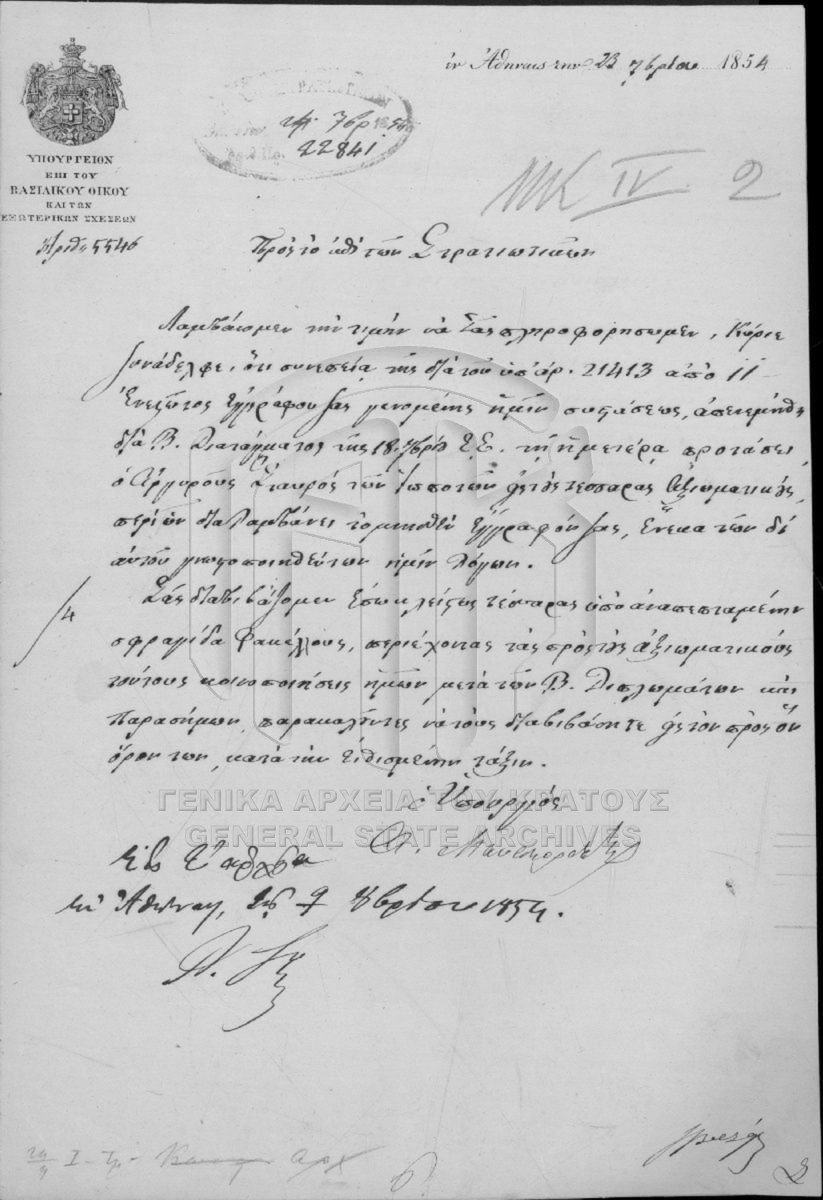 ἐν Ἀθήναις τὴν 23 7βρίου 1854
24 7βρ 1854
22841
ΥΠΟΥΡΓΕΙΟΝ
ΕΠΙ ΤΟΥ
ΒΑΣΙΛΙΚΟΥ ΟΙΚΟΥ
ΚΑΙ ΤΩΝ
ΕΞΩΤΕΡΙΚΩΝ ΣΧΕΣΕΩΝ
ΜΚ IV 2
Ἀριθ. 5546
Πρὸς τὸ ἐπὶ τῶν Στρατιωτικῶν
Λαμβάνομεν τὴν τιμὴν νὰ Σᾶς πληροφορήσωμεν, Κύριε
Συνάδελφε, ὅτι συνεπείᾳ τῆς διὰ τοῦ ὑπ' ἀρ. 21413 ἀπὸ 11
ἐνεστῶτος ἐγγράφου Σας γενομένης ἡμῖν συστάσεως, ἀπενεμήθη
διὰ Β. Διατάγματος τῆς 18 7βρίου ἐ.ἔ. τῇ ἡμετέρᾳ προτάσει
ὁ Ἀργυροῦς Σταυρὸς τῶν Ἱπποτῶν εἰς τοὺς τέσσαρας ἀξιωματικούς,
περὶ ὧν διαλαμβάνει τὸ μνησθὲν ἔγγραφόν Σας, ἕνεκα τῶν δι'
αὐτοῦ γνωστοποιηθέντων ἡμῖν λόγων.
/4 Σᾶς διαβιβάζομεν ἐσωκλείστως τέσσαρας ὑπὸ ἀναπεπταμένην
σφραγίδα φακέλλους, περιέχοντας τὰς πρὸς τοὺς ἀξιωματικοὺς
τούτους κοινοποιήσεις ἡμῶν μετὰ τῶν Β. Διπλωμάτων καὶ
παρασήμων, παρακαλοῦντες νὰ τοὺς διαβιβάσητε εἰς τὸν πρὸς ὃν
ὅρον των, κατὰ τὴν εἰθισμένην τάξιν.
ὁ Ὑπουργὸς
ΓΕΝΙΚΑ ΑΡΧΕΙΑ ΤΟΥ ΚΡΑΤΟΥΣ
GENERAL STATE ARCHIVES
Ἀ. Μαυροκορδάτος
ἐν Ἀθήναις, 1854.